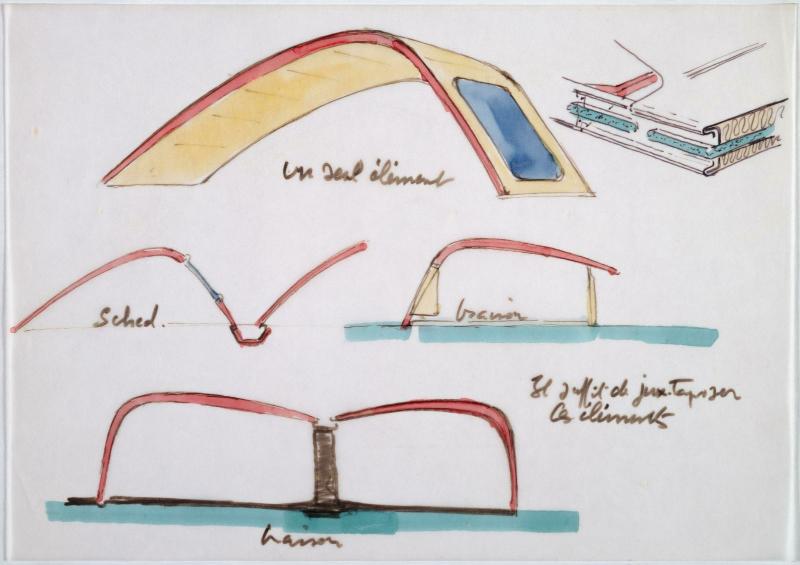 un seul élément
Sched.
maison
Il suffit de juxtaposer
les éléments
maison